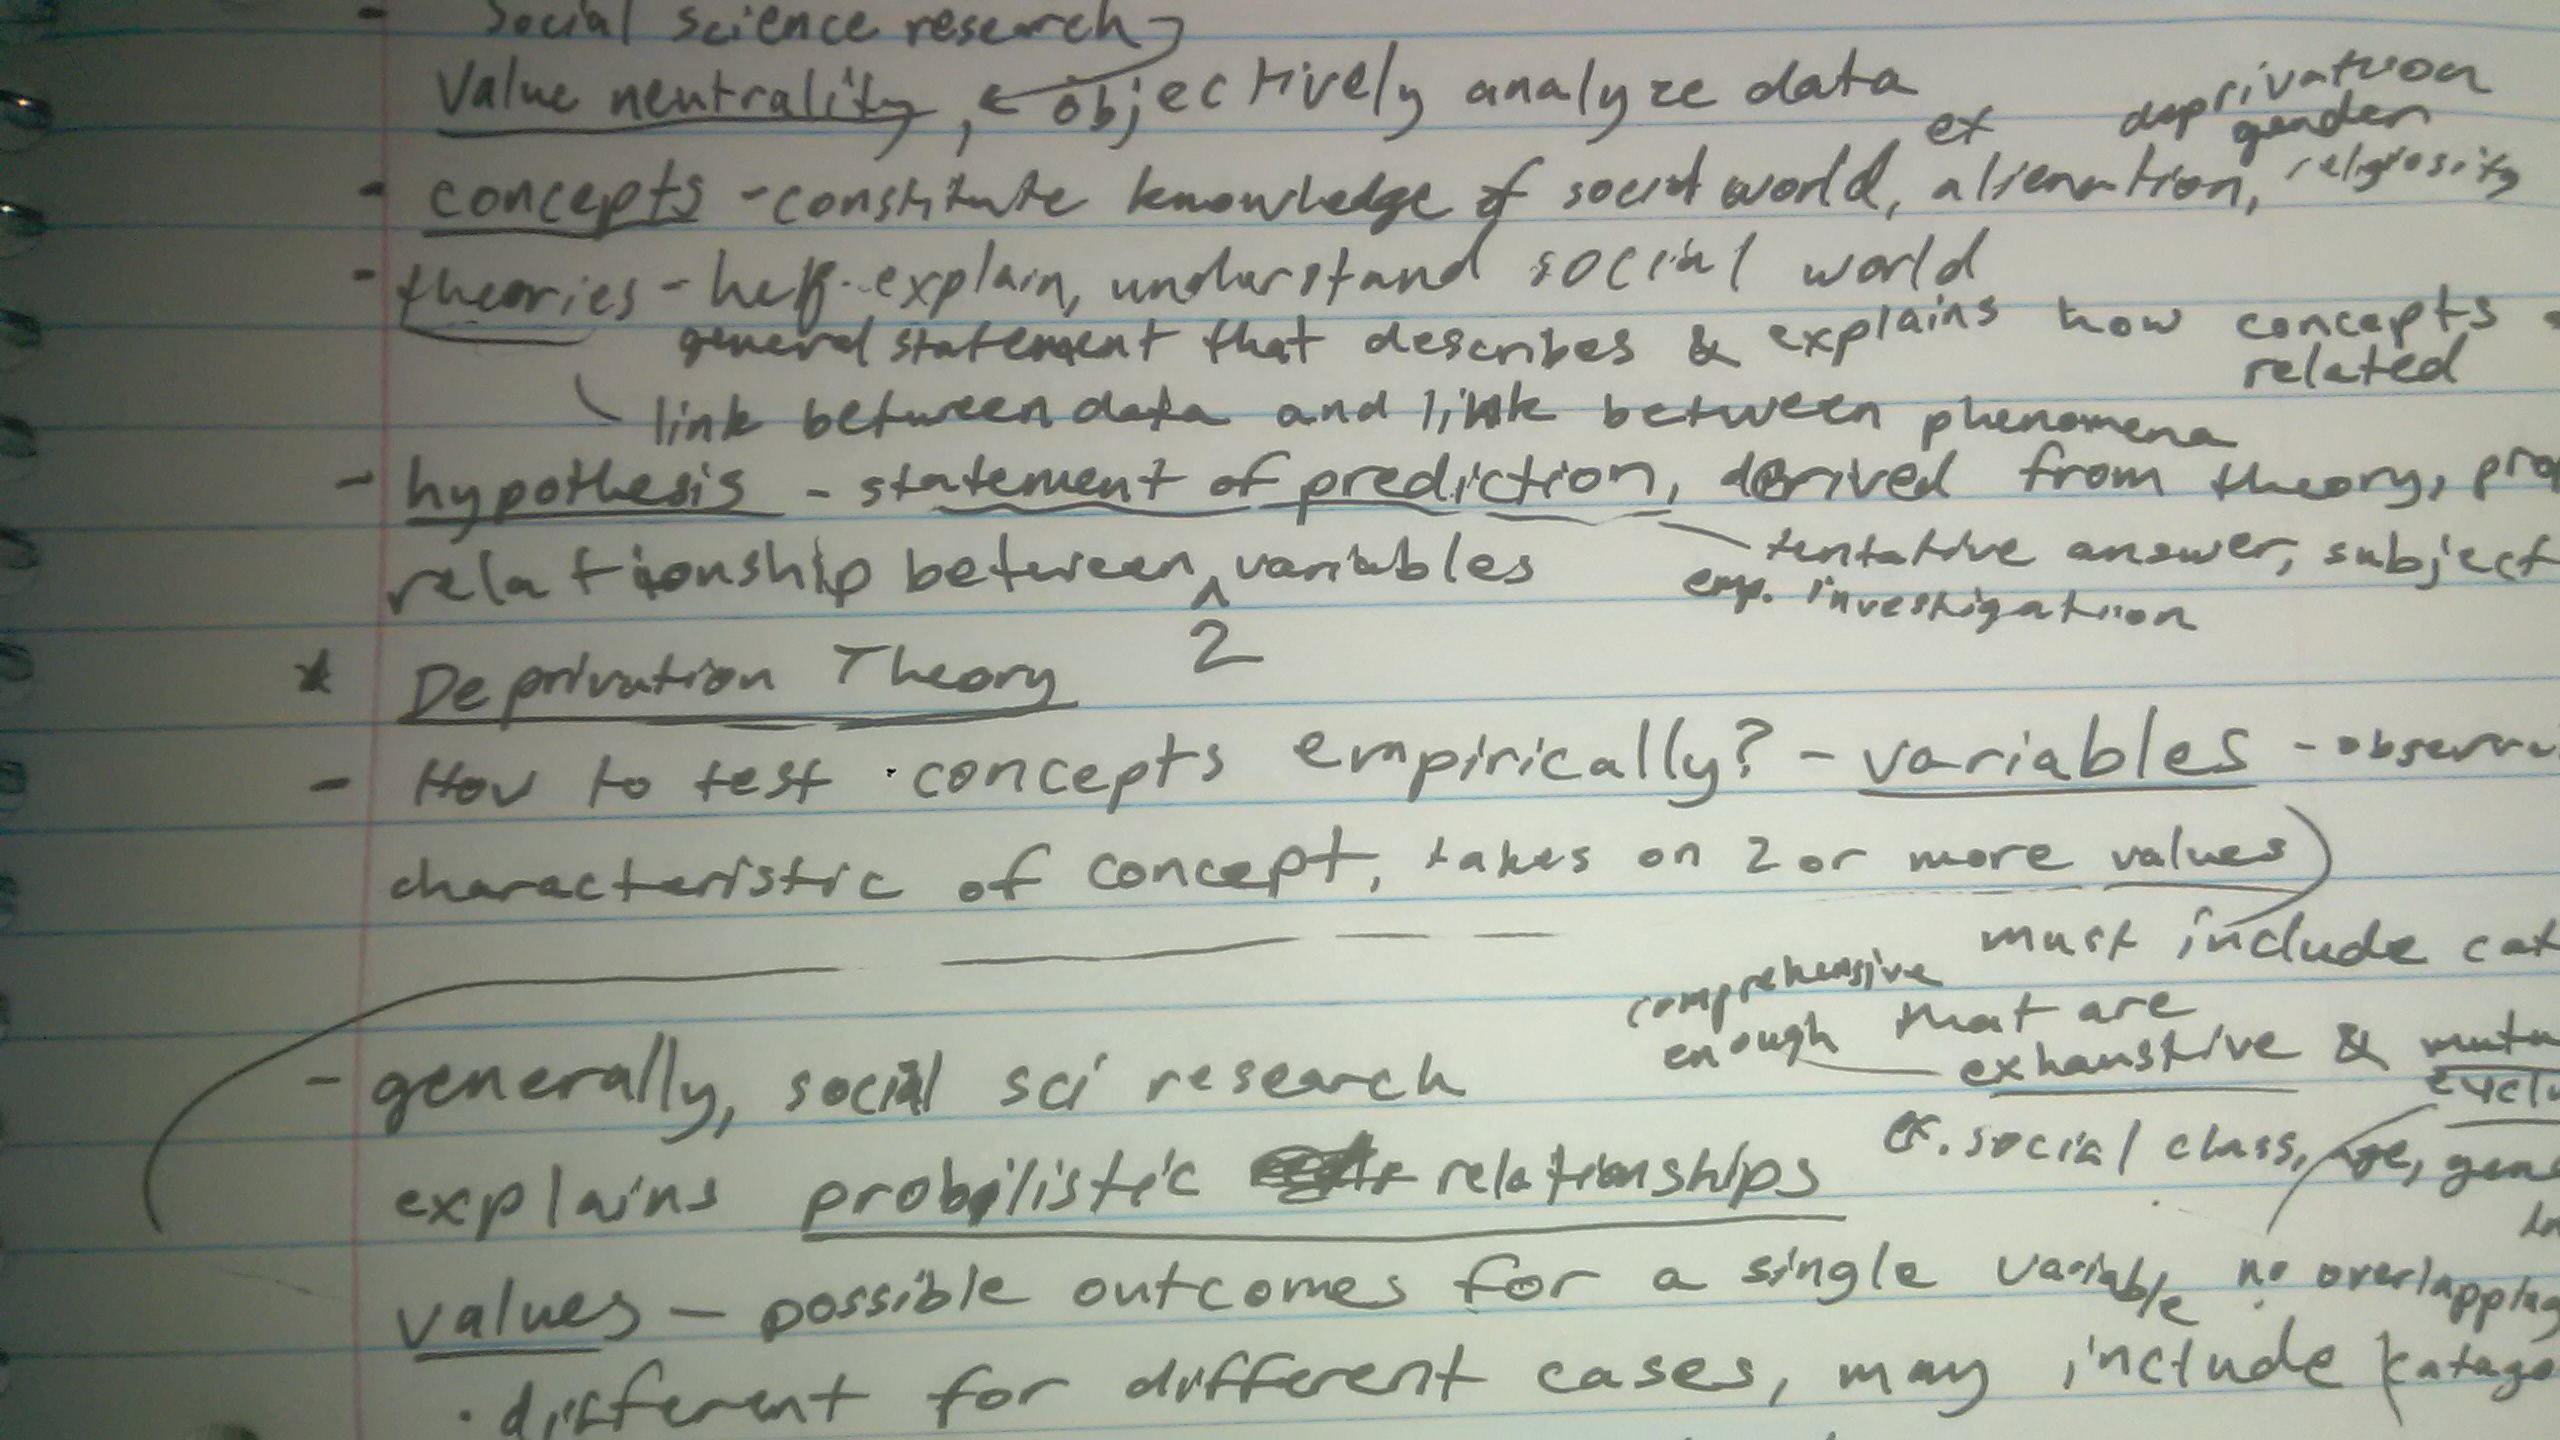 - Social science research
Value neutrality, objectively analyze data
ex deprivation
gender
- concepts - constitute knowledge of social world, alienation, religiosity
- theories - help explain, understand social world
general statement that describes & explains how concepts
related
link between data and link between phenomena
- hypothesis - statement of prediction, derived from theory,
tentative answer, subject
relationship between 2 variables
emp. investigation
* Deprivation Theory
- How to test concepts empirically? - variables -
characteristic of concept, takes on 2 or more values
must include
comprehensive
enough that are
exhaustive &
- generally, social sci research
ex. social class, age,
explains probilistic relationships
values - possible outcomes for a single variable no overlapping
· different for different cases, may include